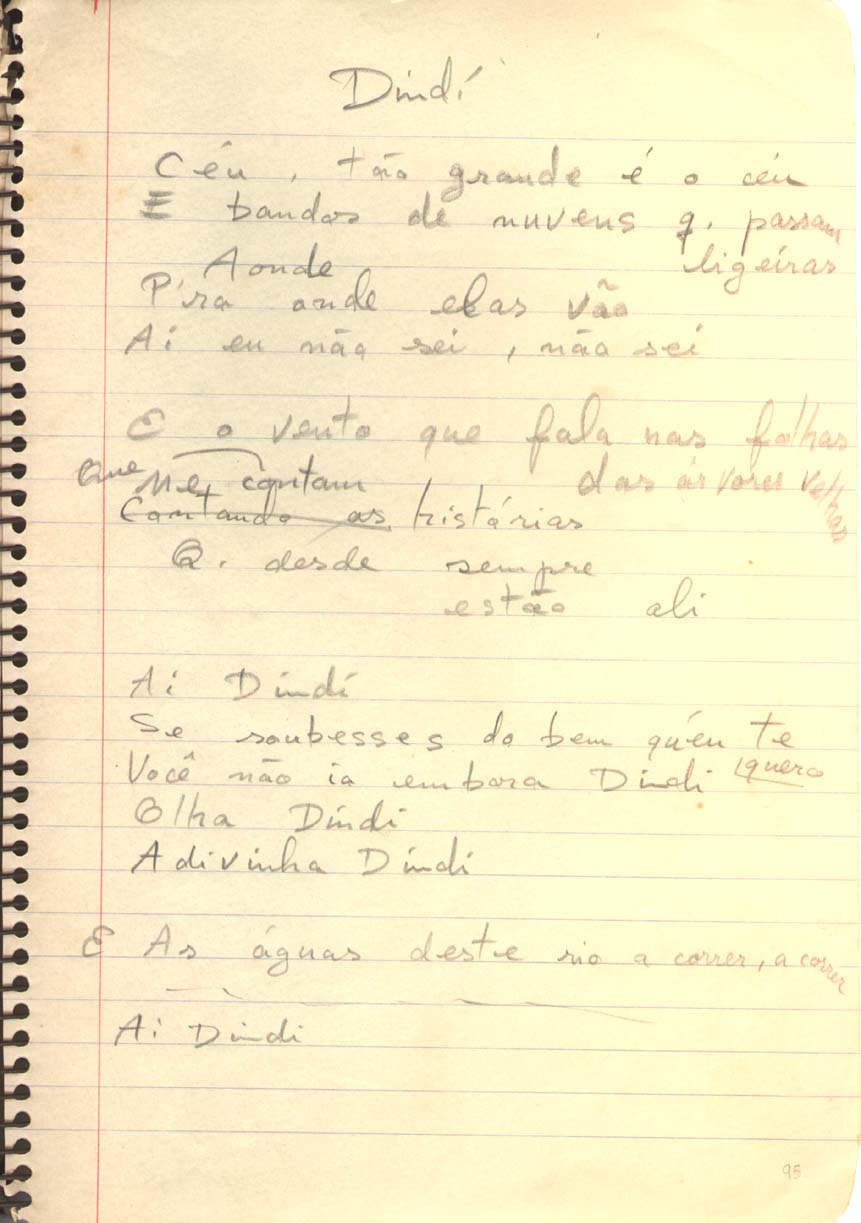 Dindí
Céu, tão grande é o céu
E bandos de nuvens q. passam
ligeiras
Aonde
P'ra onde elas vão
Ai eu não sei, não sei
E o vento que fala nas folhas
das árvores velhas
Que Me contam
Contando as histórias
Q. desde sempre
estão ali
Ai Dindí
Se soubesses do bem qu'eu te
quero
Você não ia embora Dindi
Olha Dindi
Adivinha Dindi
E As águas deste rio a correr, a correr
Ai Dindi
95